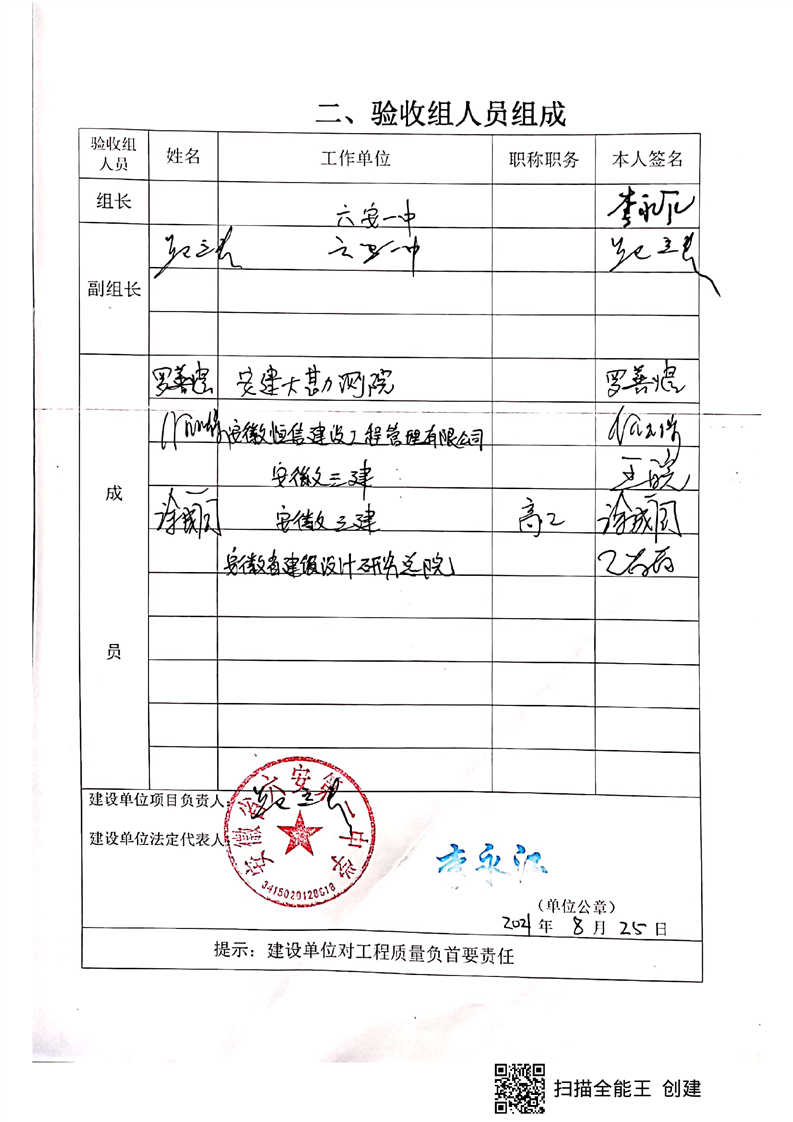 二、验收组人员组成
验收组人员 姓名 工作单位 职称职务 本人签名
组长 六安一中 李永
副组长 六安一中
罗善煜 安建大勘测院 罗善煜
安徽恒信建设工程管理有限公司
安徽三建 王皖
成 涂城 安徽三建 高工 涂城
安徽省建设设计研究总院
员
建设单位项目负责人:
建设单位法定代表人: 李永江
安徽省六安第一中学
3415020120618
(单位公章)
2021年 8月 25日
提示:建设单位对工程质量负首要责任
扫描全能王 创建